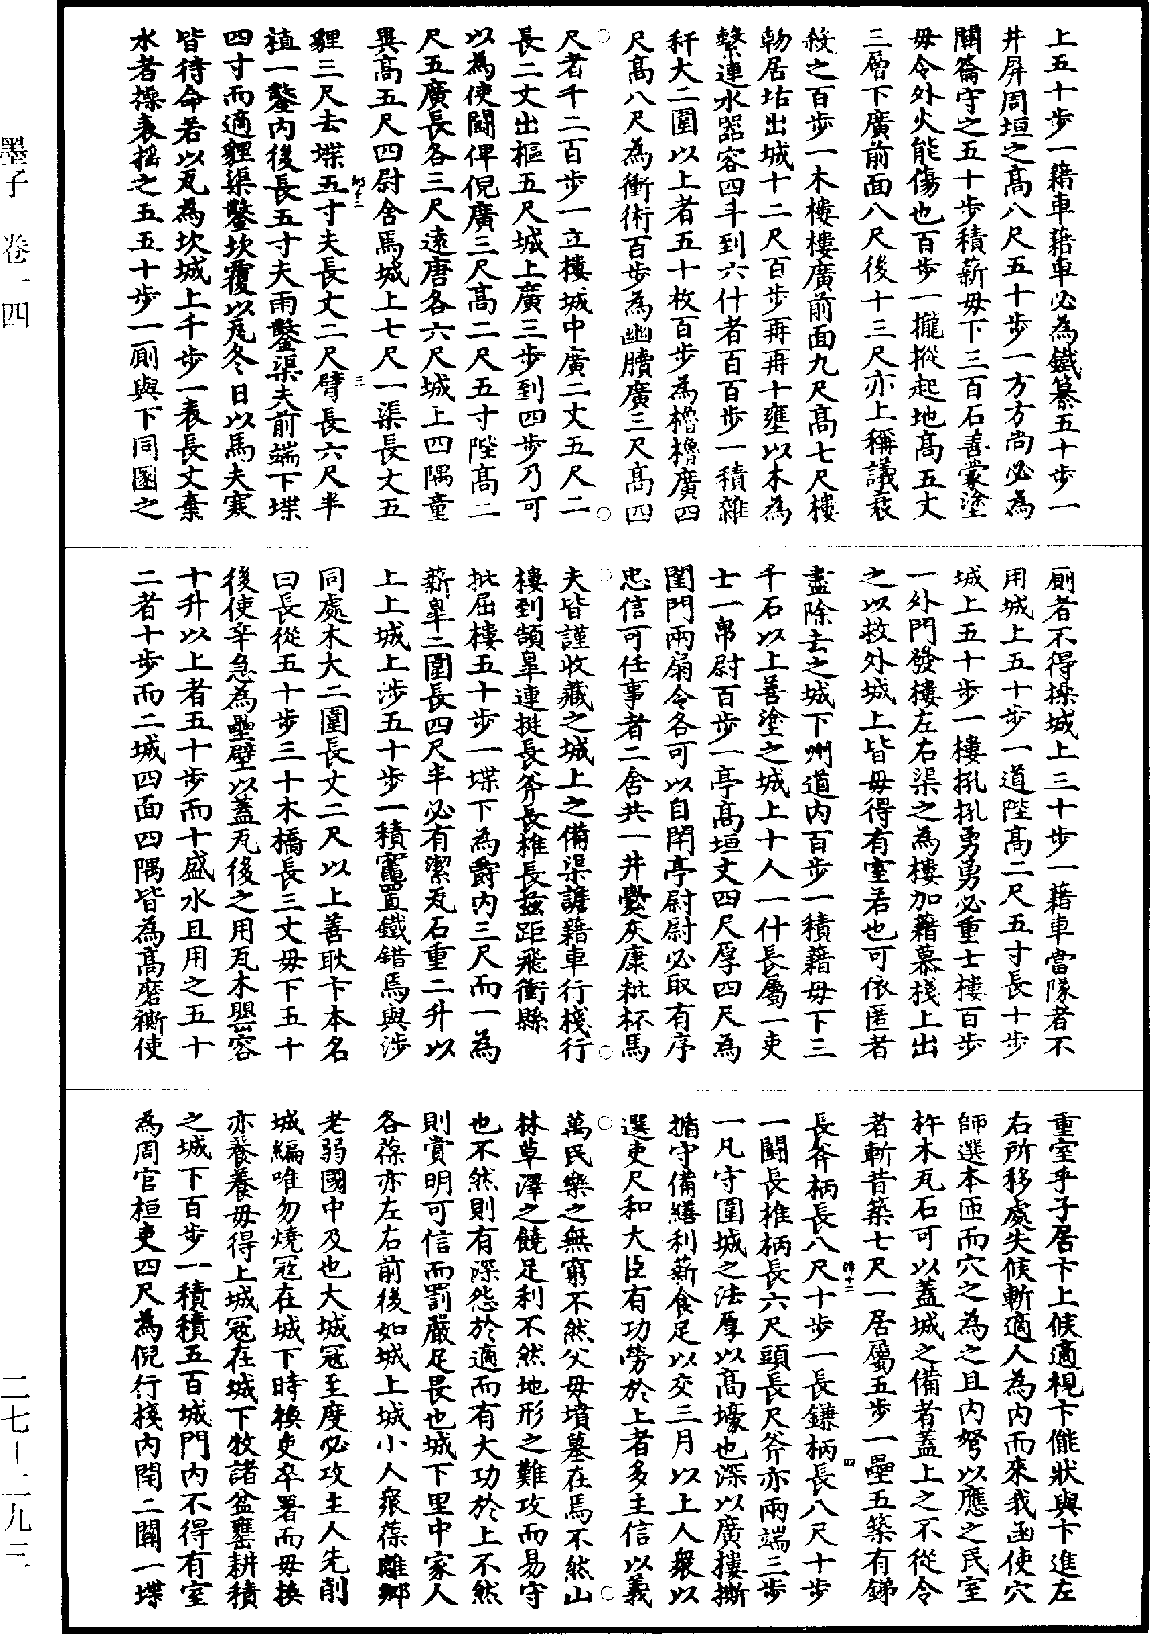 上五十步一藉車藉車必為鐵纂五十步一
井屏周垣之高八尺五十步一方方尚必為
關籥守之五十步積薪毋下三百石善蒙塗
毋令外火能傷也百步一櫳樅起地高五丈
三層下廣前面八尺後十三尺亦上稱議衰
殺之百步一木樓樓廣前面九尺高七尺樓
勎居坫出城十二尺百步再再十壅以木為
繫連水器容四斗到六什者百百步一積雜
秆大二圍以上者五十枚百步為櫓櫓廣四
尺高八尺為衝術百步為幽䐵廣三尺高四
尺者千二百步一立樓城中廣二丈五尺二
長二丈出樞五尺城上廣三步到四步乃可
以為使鬭俾倪廣三尺高二尺五寸陛高二
尺五廣長各三尺遠唐各六尺城上四隅童
異高五尺四尉舍焉城上七尺一渠長丈五
貍三尺去堞五寸夫長丈二尺臂長六尺半
植一鑿內後長五寸夫雨鑿渠夫前端下堞
四寸而適貍渠鑿坎覆以瓦冬日以馬夫寒
皆待命若以瓦為坎城上千步一表長丈棄
水者操表搖之五五十步一厠與下同圂之
厠者不得操城上三十步一藉車當隊者不
用城上五十步一道陛高二尺五寸長十步
城上五十步一樓㧈㧈勇勇必重士樓百步
一外門發樓左右渠之為樓加藉幕棧上出
之以救外城上皆毋得有室若也可依匿者
盡除去之城下州道內百步一積藉毋下三
千石以上善塗之城上十人一什長屬一吏
士一帛尉百步一亭高垣丈四尺厚四尺為
閨門兩扇令各可以自閉亭尉尉必取有序
忠信可任事者二舍共一井爨灰康粃杯馬
夫皆謹收藏之城上之備渠譫藉車行棧行
樓到頡皋連挺長斧長椎長茲距飛衝縣
批屈樓五十步一堞下為爵內三尺而一為
薪皋二圍長四尺半必有潔瓦石重二升以
上上城上涉五十步一積竈置鐵錯焉與涉
同處木大二圍長丈二尺以上善耿卞本名
曰長從五十步三十木橋長三丈毋下五十
後使辛急為壘壁以蓋瓦後之用瓦木罌容
十升以上者五十步而十盛水且用之五十
二者十步而二城四面四隅皆為高磨㯕使
重室乎子居卞上候適視卞儠狀與卞進左
右所移處失候斬適人為內而來我亟使穴
師選本匝而穴之為之且內弩以應之民室
杵木瓦石可以蓋城之備者蓋上之不從令
者斬昔築七尺一居屬五步一壘五築有銻
長斧柄長八尺十步一長鎌柄長八尺十步
一鬭長椎柄長六尺頭長尺斧亦兩端三步
一凡守圍城之法厚以高壕也深以廣樓撕
揗守備繕利薪食足以交三月以上人眾以
選吏尺和大臣有功勞於上者多主信以義
萬民樂之無窮不然父母墳墓在焉不然山
林草澤之饒足利不然地形之難攻而易守
也不然則有深怨於適而有大功於上不然
則賞明可信而罰嚴足畏也城下里中家人
各葆亦左右前後如城上城小人眾葆離鄉
老弱國中及也大城冠至度必攻主人先削
城編唯勿燒冠在城下時換吏卒署而毋換
亦養養毋得上城冠在城下牧諸盆罋耕積
之城下百步一積積五百城門內不得有室
為周官桓吏四尺為倪行棧內閈二關一堞
墨子　卷一四
二七－二九三